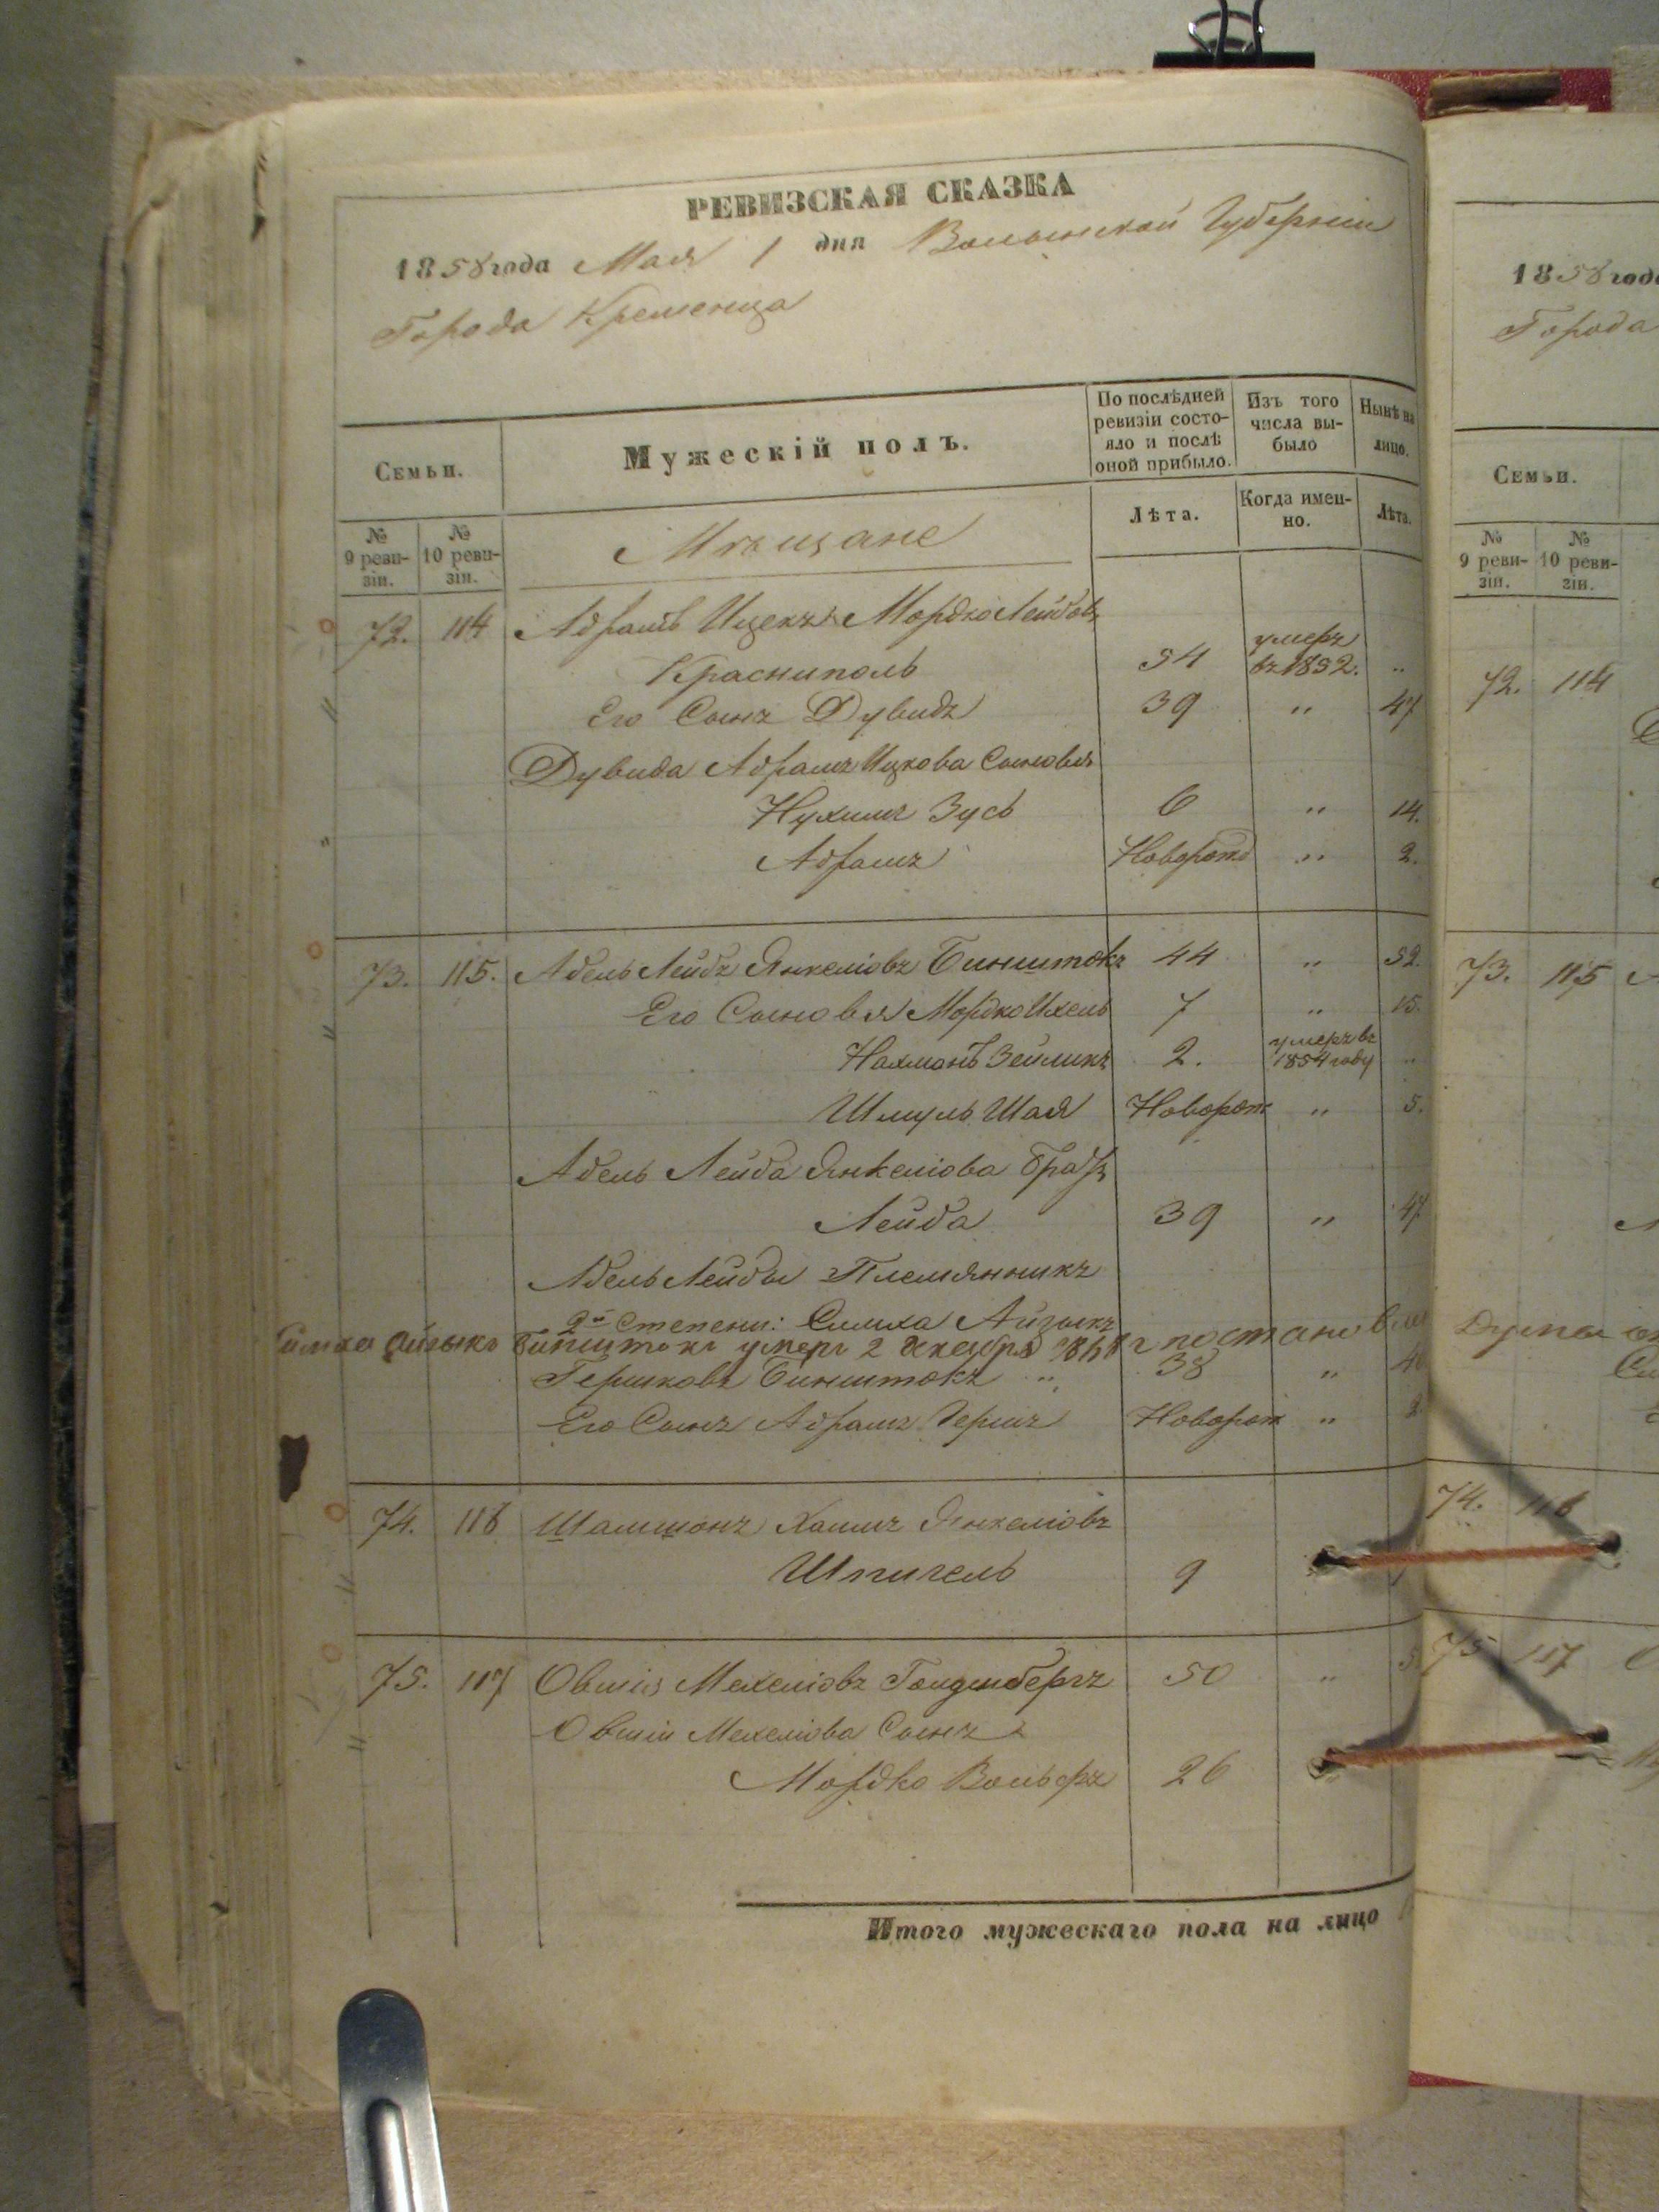 РЕВИЗСКАЯ СКАЗКА
1858 года Мая 1 дня Волынской Губерніи
Города Кременца
Семьи.
Мужескій полъ.
По послѣдней ревизіи состо-
яло и послѣ оной прибыло.
Изъ того числа вы-
было
Нынѣ на лицо.
№ 9 реви-
зіи.
№ 10 реви-
зіи.
Мѣщане
Лѣта.
Когда имен-
но.
Лѣта.
72. 114 Абрамъ Ицекъ Мордко Лейбовъ
Красниполь 54 умеръ въ 1852. "
Его Сынъ Дувидъ 39 " 47
Дувида Абрамъ Ицкова Сыновья
Нухимъ Зусь 6 " 14.
Абрамъ Новорожд " 2.
73. 115. Абель Лейбъ Янкеліовъ Бинштокъ 44 " 52.
Его Сыновья Мордко Ихель 7 " 15.
Нахманъ Зейликъ 2. умеръ въ 1854 году "
Шмуль Шая Новорож " 5.
Абель Лейба Янкеліова братъ
Лейба 39 " 47
Абель Лейбы Племянникъ
2й Степени: Симха Айзыкъ
Симха Айзыкъ Бинштокъ умеръ 2 декабря г постановле
Гершковъ Бинштокъ " 38 "
Его Сынъ Абрамъ Гершъ Новорож " 2
74. 116 Шамшонъ Хаимъ Янкеліовъ
Шпигель 9
75. 117 Овшія Мехеліовъ Голденбергъ 50 "
Овшіи Мехеліова Сынъ
Мордко Вольфъ 26
Итого мужескаго пола на лицо
1858 года
Города
Семьи.
№ 9 реви-
зіи.
№ 10 реви-
зіи.
72. 114
73. 115
Думы
74. 116
75 117